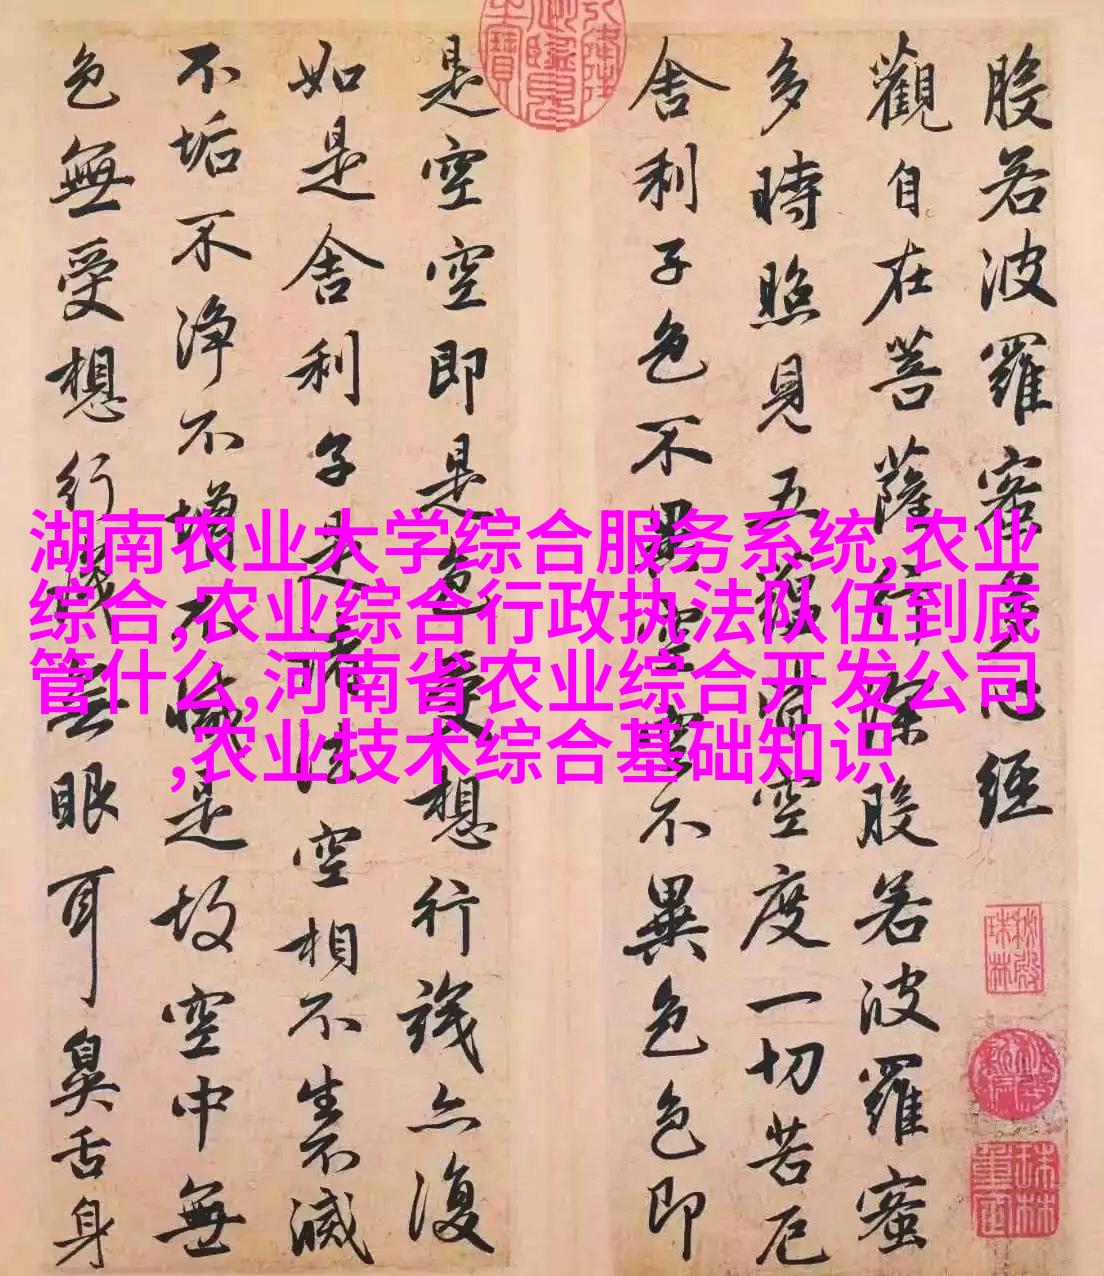 般若波羅蜜多心經
觀自在菩薩行深般若波羅蜜
多時照見五蘊皆空度一切苦厄
舍利子色不異空空不異色色即
是空空即是色受想行識亦復
如是舍利子是諸法空相不生不滅
不垢不淨不增不減是故空中無
色無受想行識無眼耳鼻舌身
湖南农业大学综合服务系统,农业
综合,农业综合行政执法队伍到底
管什么,河南省农业综合开发公司
,农业技术综合基础知识
秘殿
珠林
珠林
重定